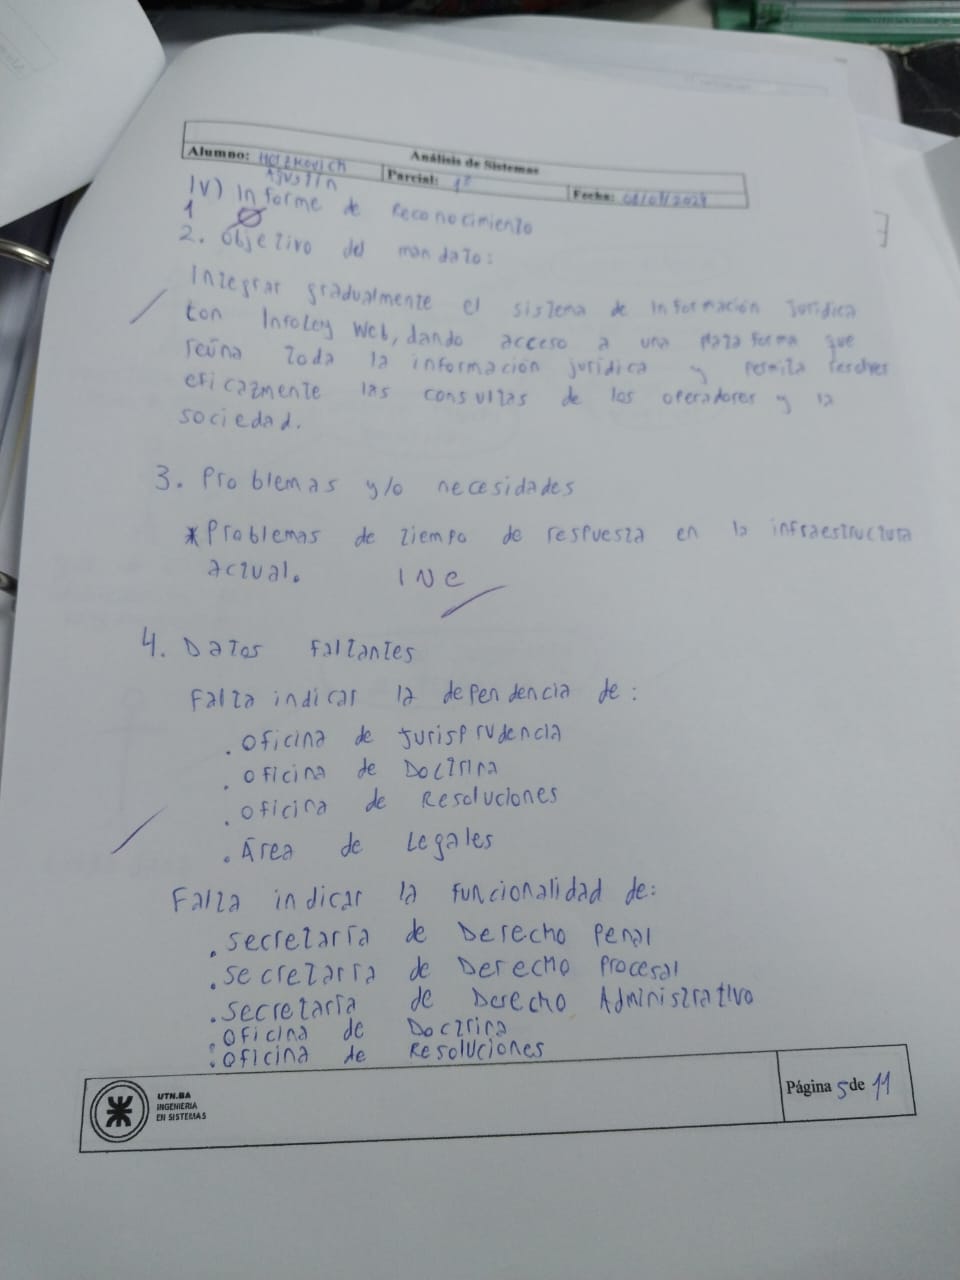 Análisis de Sistemas
Alumno: Agustín
Parcial: 1º
Fecha:
IV) Informe de Reconocimiento
1 Ø
2. Objetivo del mandato:
Integrar gradualmente el sistema de información jurídica
con Infoley Web, dando acceso a una plataforma que
reúna toda la información jurídica y permita resolver
eficazmente las consultas de los operadores y la
sociedad.
3. Problemas y/o necesidades
* Problemas de tiempo de respuesta en la infraestructura
actual. INC
4. Datos Faltantes
Falta indicar la dependencia de:
. Oficina de Jurisprudencia
. Oficina de Doctrina
. Oficina de Resoluciones
. Área de Legales
Falta indicar la funcionalidad de:
. Secretaría de Derecho Penal
. Secretaría de Derecho Procesal
. Secretaría de Derecho Administrativo
. Oficina de Doctrina
. Oficina de Resoluciones
UTN.BA
INGENIERIA
EN SISTEMAS
Página 5 de 11